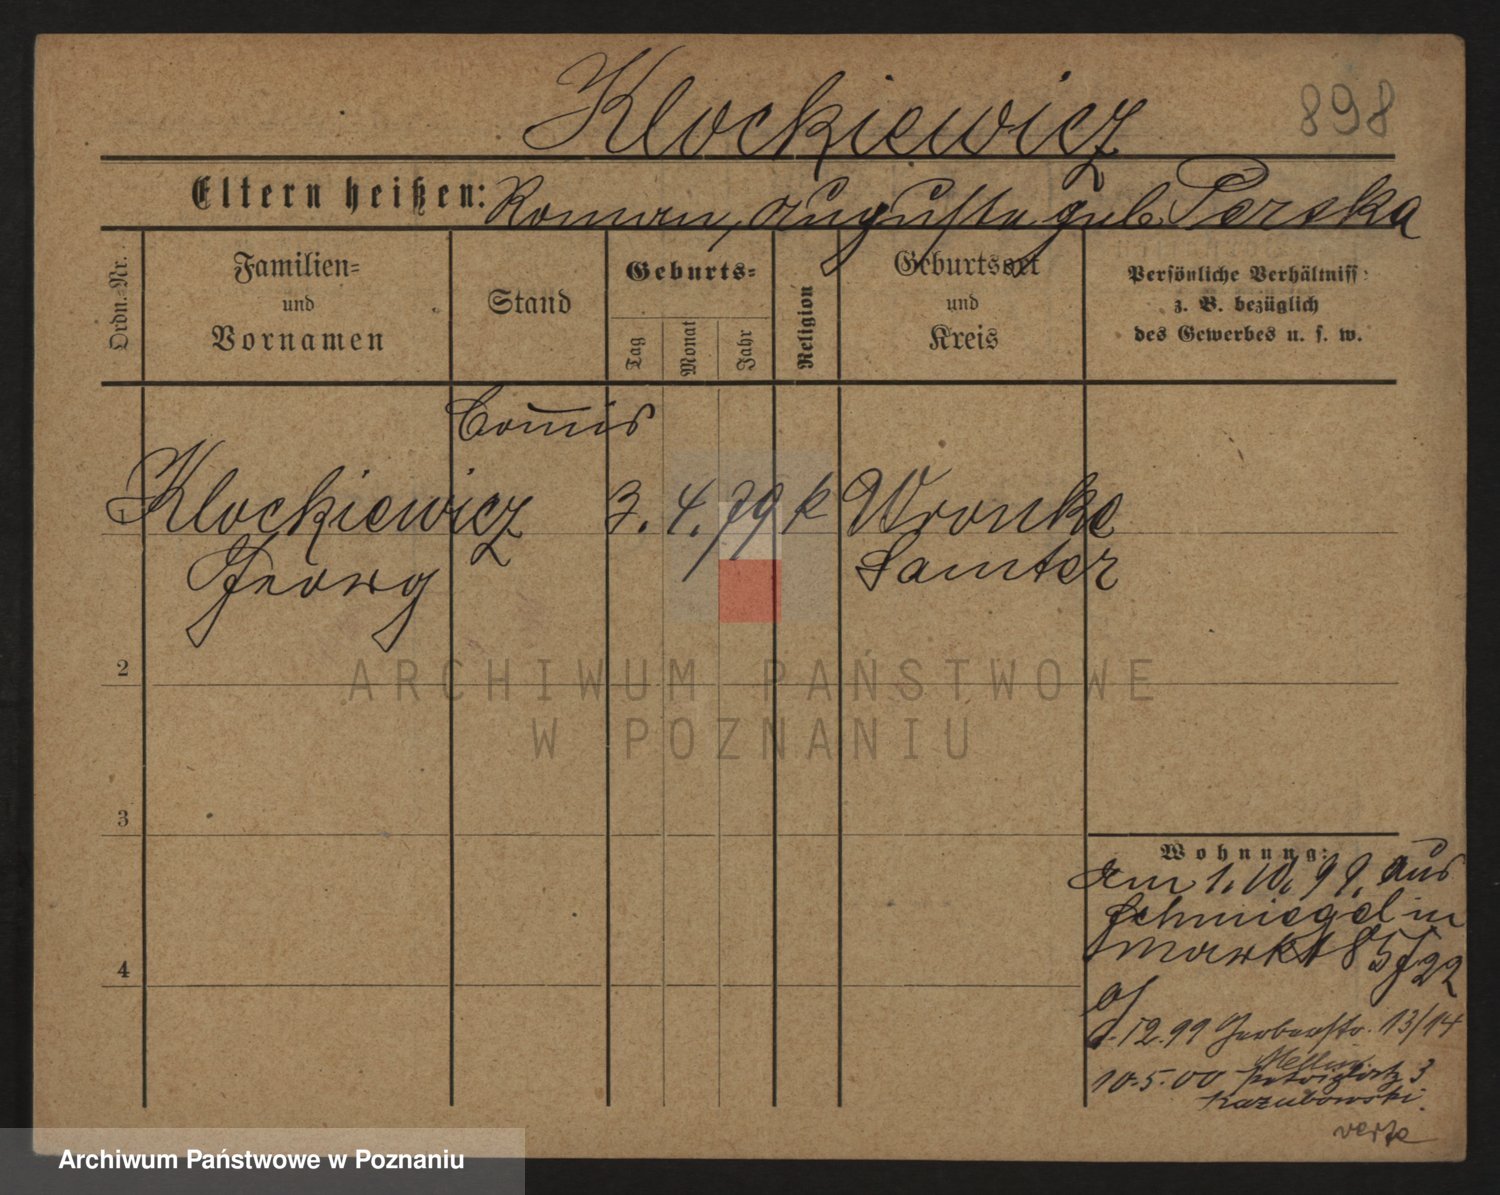 Klockiewicz
898
Eltern heißen: Roman, Auguste geb. Perska
Ordn.-Nr.
Familien-
und
Vornamen
Stand
Geburts-
Tag
Monat
Jahr
Religion
Geburtsort
und
Kreis
Persönliche Verhältnisse
z. B. bezüglich
des Gewerbes u. s. w.
Commis
Klockiewicz 3. 4. 79 k Wronke
Georg Samter
2
3
4
Wohnung:
am 1. 10. 99. aus
Schmiegel in
Markt 85/22
1.12.99 Gerberstr. 13/14
10.5.00 Petriplatz 3
Kazubowski.
verte
ARCHIWUM PAŃSTWOWE
W POZNANIU
Archiwum Państwowe w Poznaniu